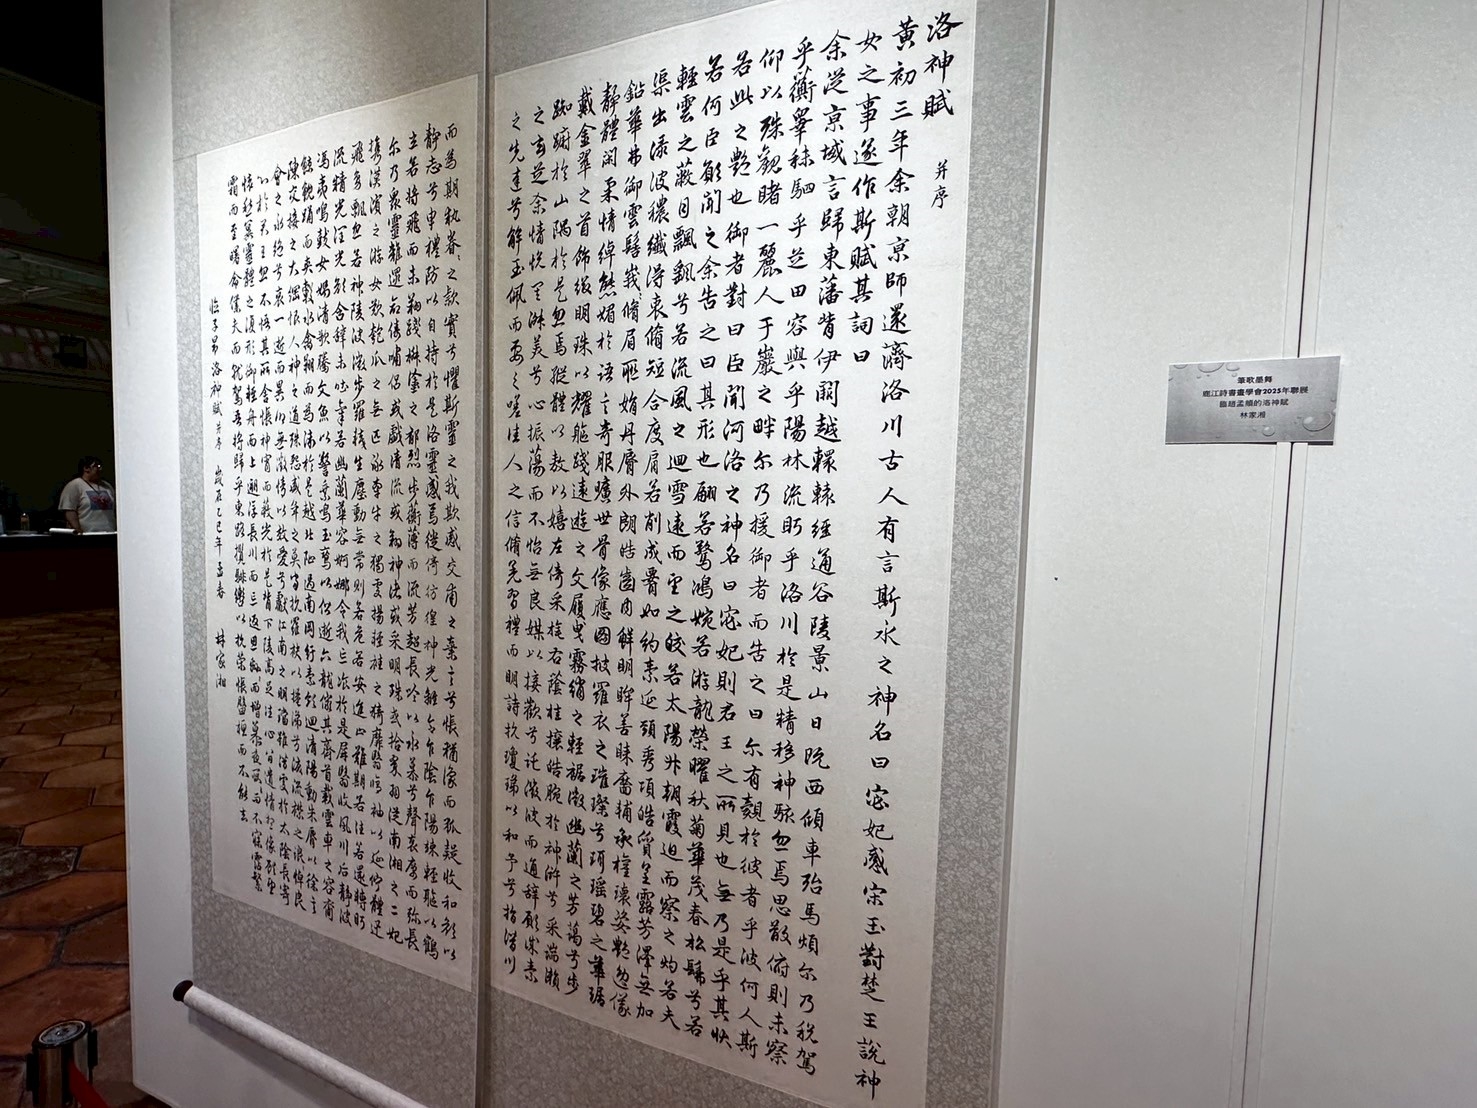 洛神賦 并序
黃初三年余朝京師還濟洛川古人有言斯水之神名曰宓妃感宋玉對楚王說神
女之事遂作斯賦其詞曰
余從京域言歸東藩背伊闕越轘轅經通谷陵景山日既西傾車殆馬煩尔乃稅駕
乎蘅皋秣駟乎芝田容與乎陽林流眄乎洛川於是精移神駭忽焉思散俯則未察
仰以殊觀睹一麗人于巖之畔尔乃援御者而告之曰尔有覿於彼者乎彼何人斯
若此之艷也御者對曰臣聞河洛之神名曰宓妃則君王之所見也無乃是乎其狀
若何臣願聞之余告之曰其形也翩若驚鴻婉若游龍榮曜秋菊華茂春松髴兮若
輕雲之蔽月飄飄兮若流風之迴雪遠而望之皎若太陽升朝霞迫而察之灼若夫
渠出淥波穠纖得衷脩短合度肩若削成署如約素延頸秀項皓質呈露芳澤無加
鉛華弗御雲髻峩峩脩眉聯娟丹脣外朗皓齒內鮮明眸善睞靨輔承權瓌姿艷逸儀
靜體閑柔情綽態媚於語言奇服曠世骨像應圖披羅衣之璀璨兮珥瑤碧之華琚
戴金翠之首飾綴明珠以耀軀踐遠遊之文履曳霧綃之輕裾微幽蘭之芳藹兮步
踟躕於山隅於是忽焉縱體以敖以嬉左倚采旄右蔭桂旗攘皓腕於神滸兮采湍瀨
之玄芝余情悅其淑美兮心振蕩而不怡無良媒以接歡兮託微波而通辭願誠素
之先達兮解玉佩而要之嗟佳人之信脩羌習禮而明詩抗瓊珶以和予兮指潛川
而為期執眷眷之款實兮懼斯靈之我欺感交甫之棄言兮悵猶豫而狐疑收和顏以
靜志兮申禮防以自持於是洛靈感焉徙倚彷徨神光離合乍陰乍陽竦輕軀以鶴
立若將飛而未翔踐椒塗之郁烈步蘅薄而流芳超長吟以永慕兮聲哀厲而彌長
尔乃衆靈雜遝命儔嘯侶或戲清流或翔神渚或采明珠或拾翠羽從南湘之二妃
攜漢濱之游女歎匏瓜之無匹詠牽牛之獨處揚輕袿之猗靡翳脩袖以延佇體迅
飛鳧飄忽若神陵波微步羅襪生塵動無常則若危若安進止難期若往若還轉眄
流精光潤玉顏含辭未吐氣若幽蘭華容婀娜令我忘飡於是屏翳收風川后靜波
馮夷鳴鼓女媧清歌騰文魚以警乘鳴玉鸞以偕逝六龍儼其齊首載雲車之容裔
鯨鯢踊而夾轂水禽翔而為衛於是越北沚過南岡紆素領迴清陽動朱脣以徐言
陳交接之大綱恨人神之道殊怨盛年之莫當抗羅袂以掩涕兮淚流襟之浪浪悼良
會之永絕兮哀一逝而異鄉無微情以效愛兮獻江南之明璫雖潛處於太陰長寄
心於君王忽不悟其所舍悵神宵而蔽光於是背下陵高足往心留遺情想像顧望
懷愁冀靈體之復形御輕舟而上遡浮長川而忘返思緜緜而增慕夜耿耿而不寐霑繁
霜而至曙命僕夫而就駕吾將歸乎東路攬騑轡以抗策悵盤桓而不能去
臨子昂洛神賦并序 歲在乙巳年孟春 林家湘
筆歌墨舞
鹿江詩書畫學會2025年聯展
臨趙孟頫的洛神賦
林家湘